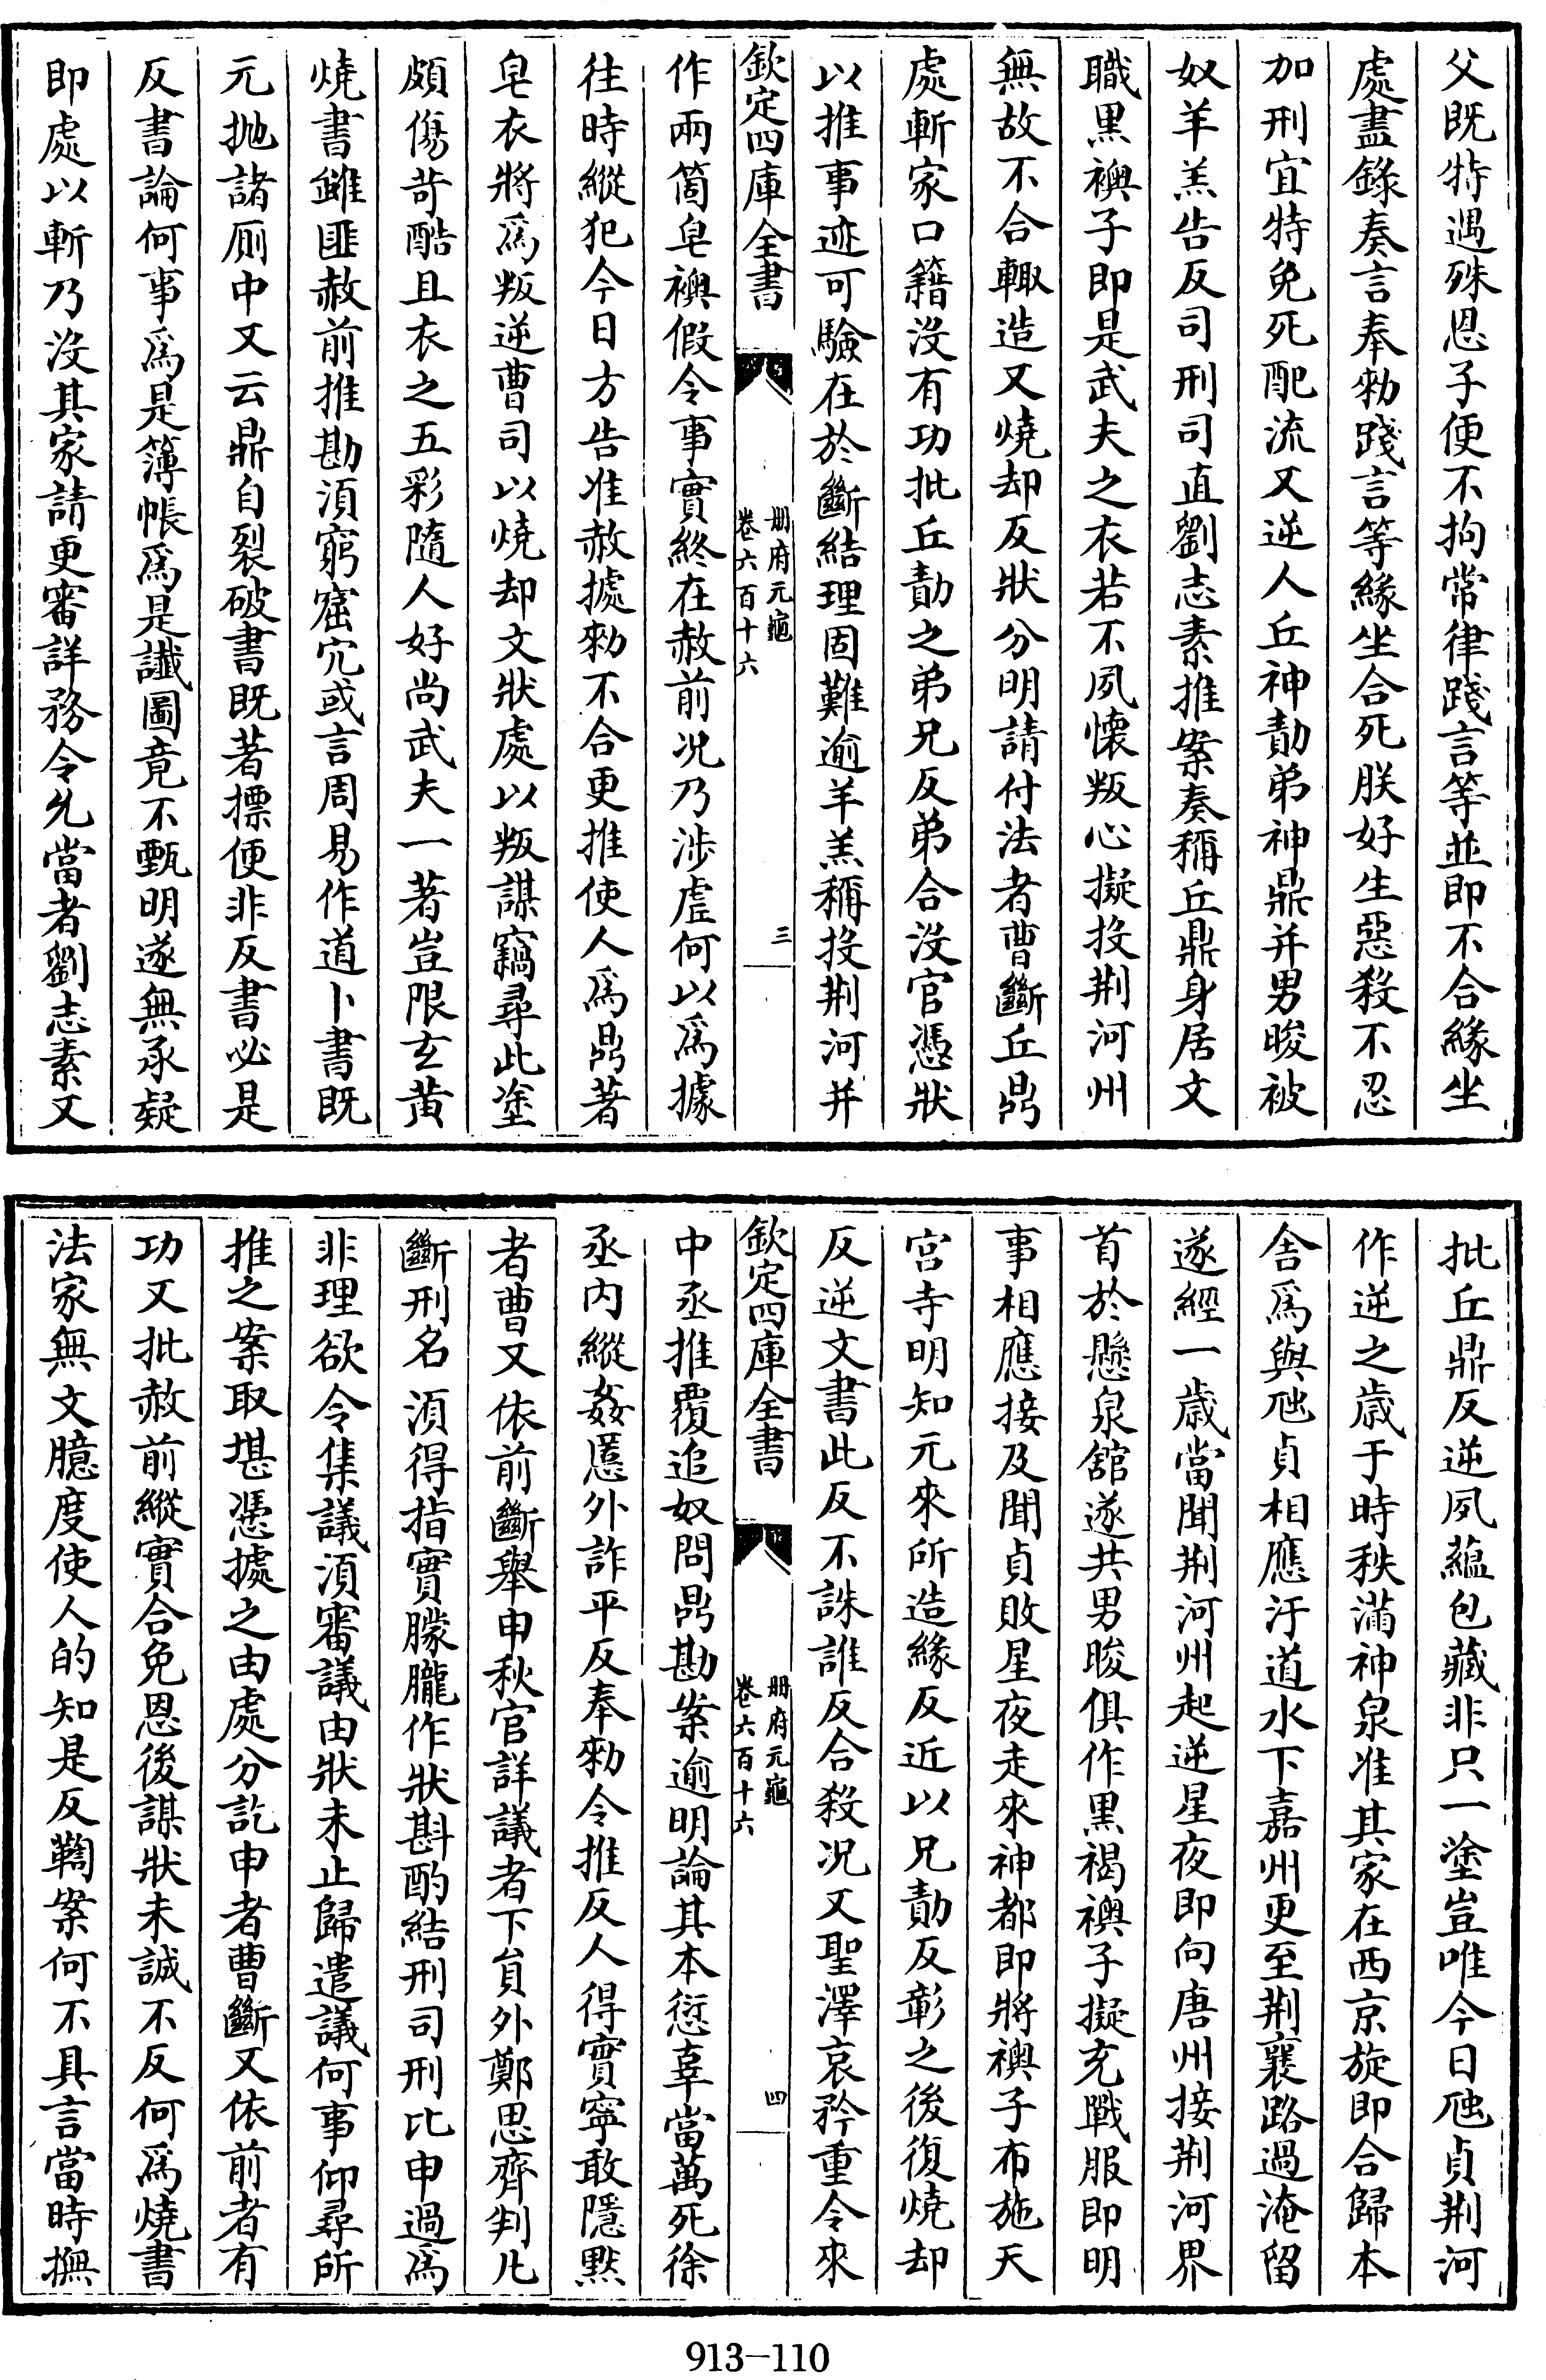 父既特遇殊恩子便不拘常律踐言等並即不合緣坐
處盡錄奏言奉勑踐言等緣坐合死朕好生惡殺不忍
加刑宜特免死配流又逆人丘神勣弟神鼎并男晙被
奴羊羔告反司刑司直劉志素推案奏稱丘鼎身居文
職黑襖子即是武夫之衣若不夙懷叛心擬投荆河州
無故不合輙造又燒却反狀分明請付法者曹斷丘鼎
處斬家口籍没有功批丘勣之弟兄反弟合没官憑狀
以推事迹可驗在於斷結理固難逾羊羔稱投荆河并
欽定四庫全書
册府元龜
卷六百十六
三
作兩箇皂襖假令事實終在赦前况乃涉虚何以為據
往時縱犯今日方告准赦據勑不合更推使人為鼎著
皂衣將為叛逆曹司以燒却文狀處以叛謀竊尋此塗
頗傷苛酷且衣之五彩隨人好尚武夫一著豈限玄黄
燒書雖匪赦前推勘湏窮窟宂或言周易作道卜書既
元抛諸厠中又云鼎自裂破書既著摽便非反書必是
反書論何事為是簿帳為是讖圖竟不甄明遂無承疑
即處以斬乃没其家請更審詳務令允當者劉志素又
批丘鼎反逆夙蘊包藏非只一塗豈唯今日虺貞荆河
作逆之歳于時秩滿神泉准其家在西京旋即合歸本
舍為與虺貞相應汙道水下嘉州更至荆襄路過淹留
遂經一歳當聞荆河州起逆星夜即向唐州接荆河界
首於懸泉舘遂共男晙俱作黑褐襖子擬充戰服即明
事相應接及聞貞敗星夜走來神都即將襖子布施天
宫寺明知元來所造緣反近以兄勣反彰之後復燒却
反逆文書此反不誅誰反合殺况又聖澤哀矜重令來
欽定四庫全書
册府元龜
卷六百十六
四
中丞推覆追奴問鼎勘案逾明論其本愆辜當萬死徐
丞内縱姦慝外詐平反奉勑令推反人得實寧敢隱默
者曹又依前斷舉申秋官詳議者下員外鄭思齊判凡
斷刑名湏得指實朦朧作狀斟酌結刑司刑比申過為
非理欲令集議湏審議由狀未止歸遣議何事仰尋所
推之案取堪憑據之由處分訖申者曹斷又依前者有
功又批赦前縱實合免恩後謀狀未誠不反何為燒書
法家無文臆度使人的知是反鞫案何不具言當時撫
913-110